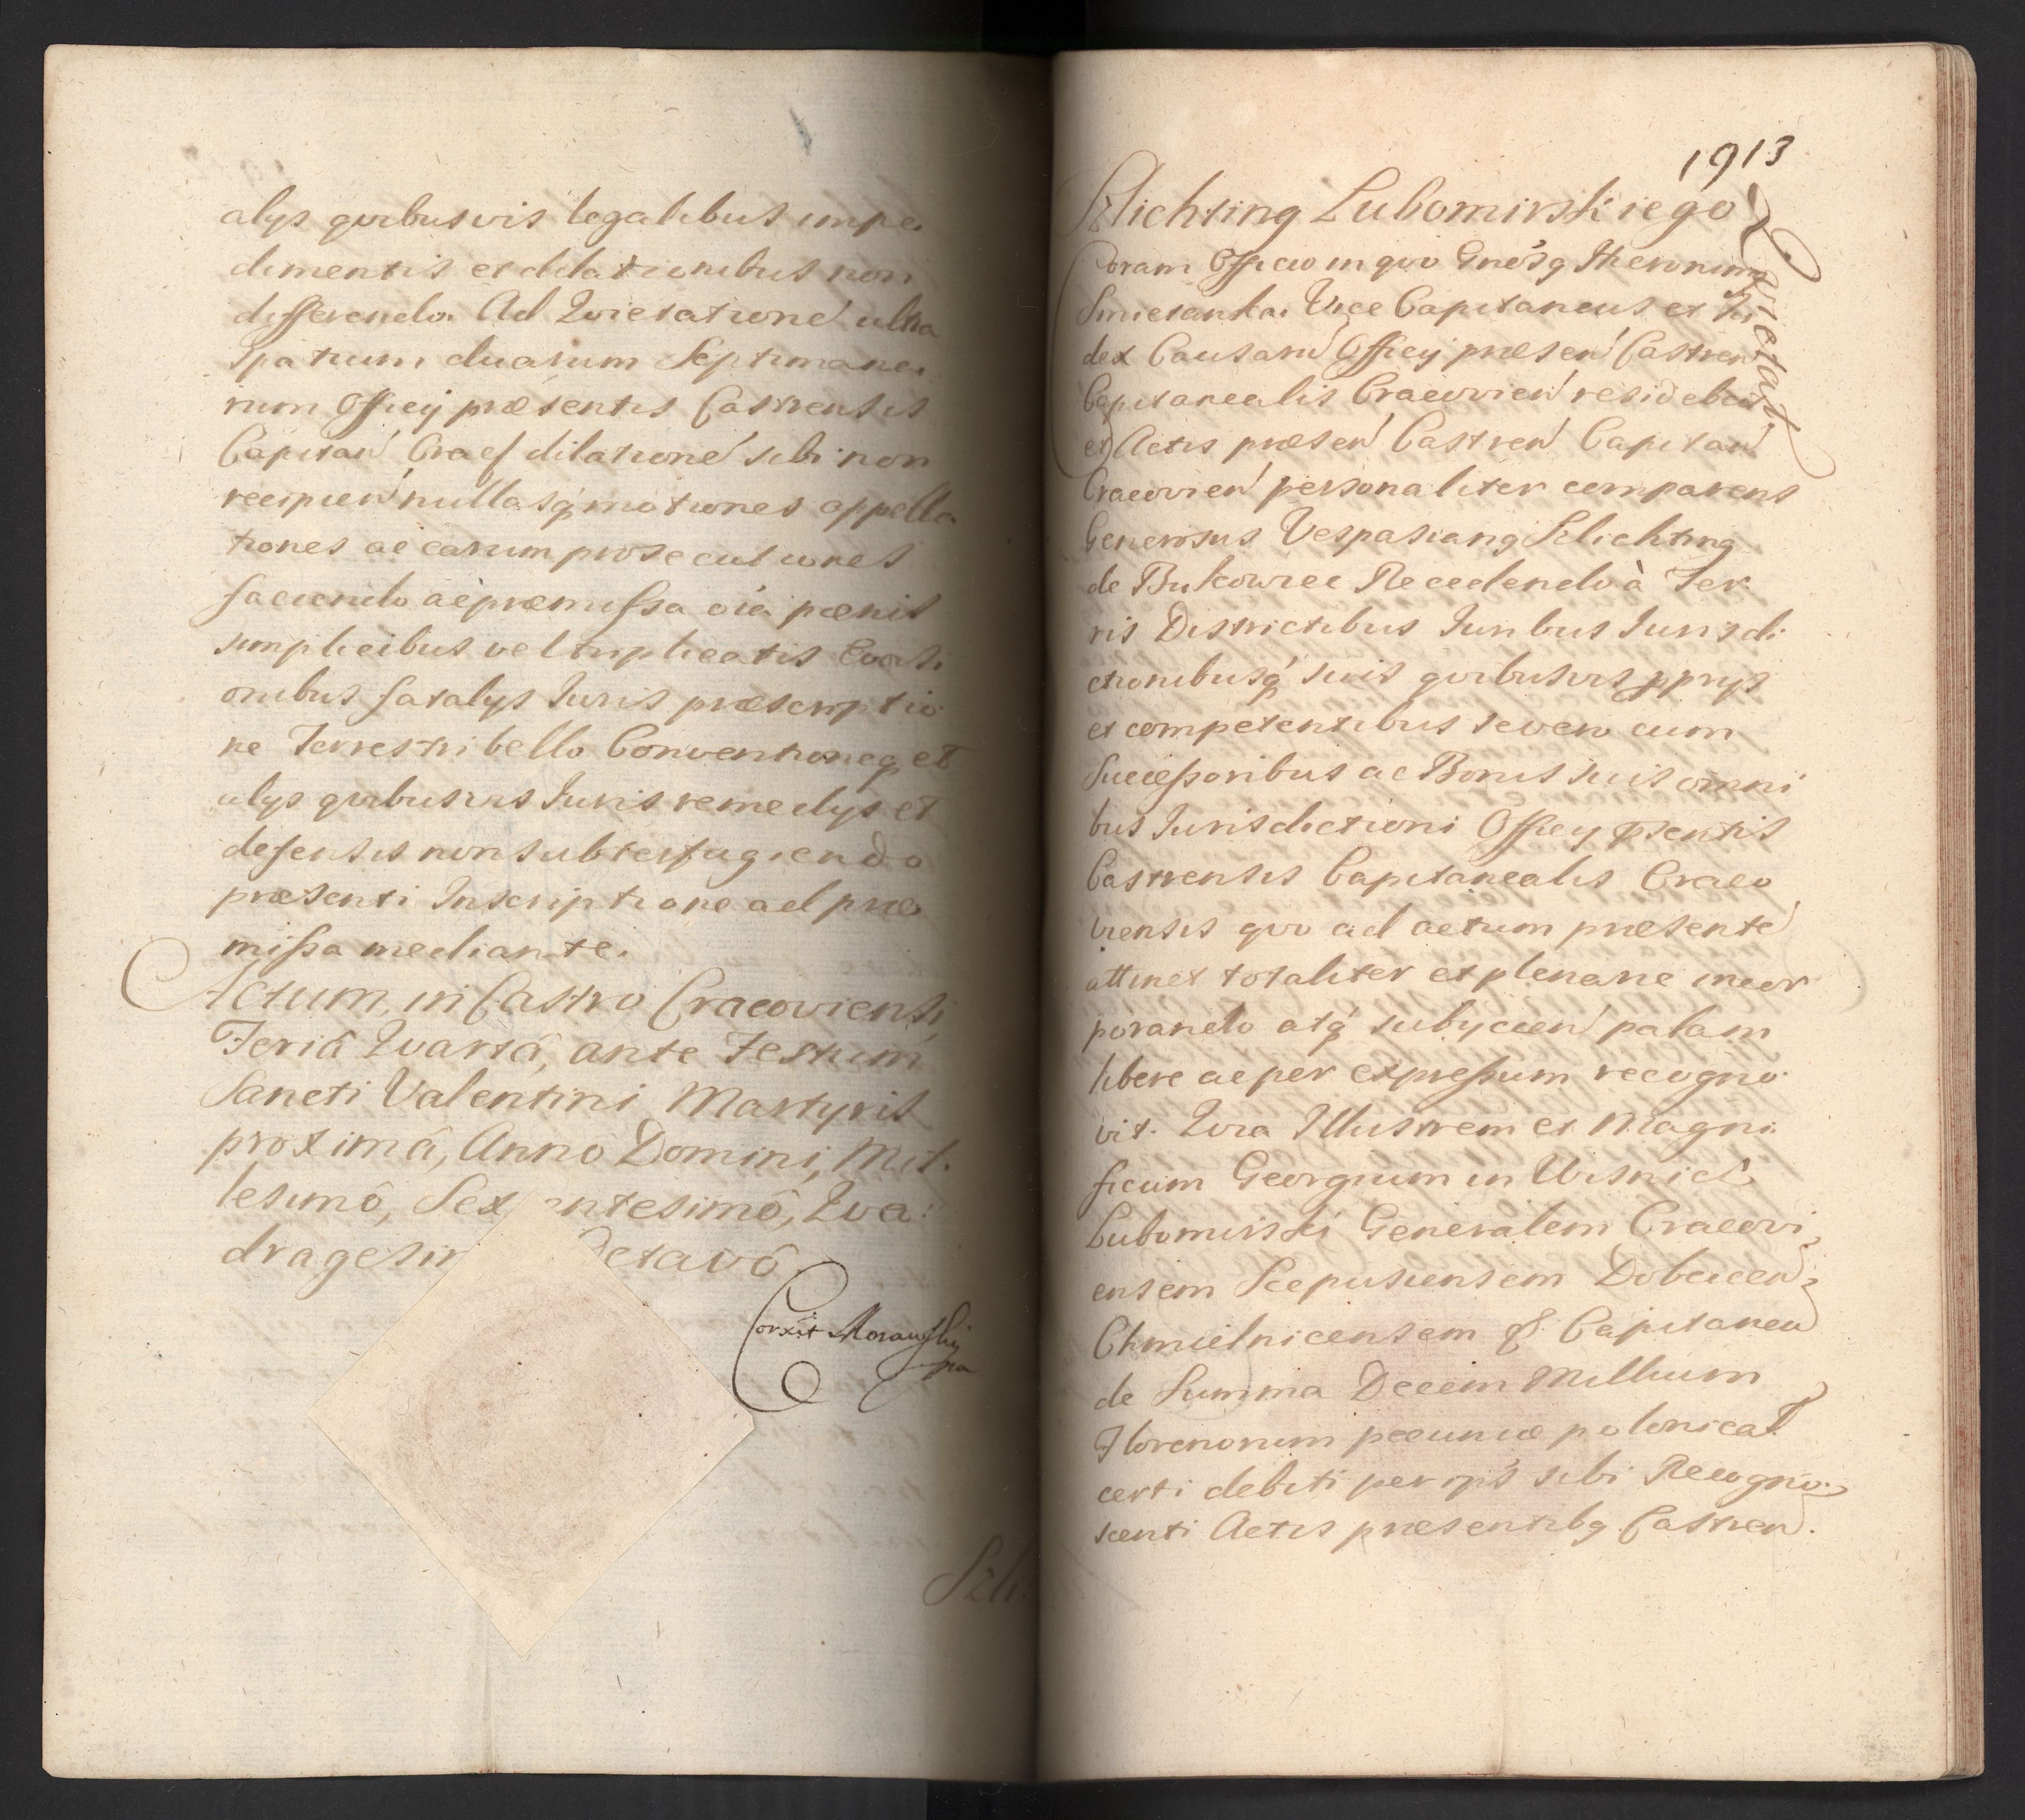 alys quibusvis legalibus impe
dimentis et dilationibus non
differendo. Ad Quietationé ultra
Spatium duarum Septimana
rum Officij præsentis Castrensis
Capitań Crac dilationé sibi non
recipień nullasq motiones appella
tiones ac earum prosecutiones
faciendo ac præmissa oia pœnis
simplicibus vel triplicatis Evasi
onibus fatalys Iuris præscriptio
ne Terrestri bello Conventioneq et
alys quibusvis Iuris remedys et
defensis non subterfugiendo
præsenti Inscriptione ad præ
missa mediante.
Actum in Castro Cracoviensi
Feriâ Quartâ, ante Festum
Sancti Valentini Martyris
proximâ, Annô Domini, Mil
lesimô, Sex entesimô, Qua
dragesim Octavô.
Corxit Morawski
mp
Szli
1913
Szlichting Lubomirskiego
Quietat
Coram Officio in quo Gnosq Iheronim
Smietanka Vice Capitaneus et Iu
dex Causarū Officij præseń Castreń
Capitanealis Cracovień residebat
et Actis præseń Castreń Capitań
Cracovień personaliter comparens
Generosus Vespasianq Szlichting
de Bukowiec Recedendo à Ter
ris Districtibus Iuribus Iurisdi
ctionibusq suis quibusvis pprys
et competentibus seven cum
Successoribus ac Bonis suis omni
bus Iurisdictioni Officij psentis
Castrensis Capitanealis Craco
viensis quo ad actum præsenté
attinet totaliter et plenarie incor
porando atq subycień palam
libere ac per expressum recogno
vit. Quia Illustrem et Magni
ficum Georgium in Wisnicz
Lubomirski Generalem Cracovi
ensem Scepusiensem Dobcicen
Chmielnicensem & Capitaneū
de Summa Decem Millium
Florenorum pecuniæ polonical
certi debiti per ips sibi Recogno
scenti Actis præsentibq Castren.